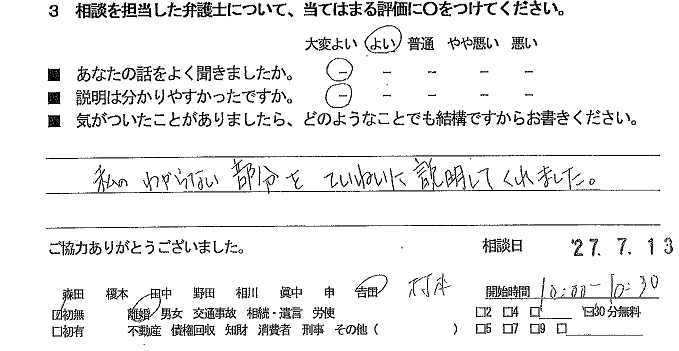 3 相談を担当した弁護士について、当てはまる評価に○をつけてください。
大変よい よい 普通 やや悪い 悪い
■ あなたの話をよく聞きましたか。 － － － － －
■ 説明は分かりやすかったですか。 － － － － －
■ 気がついたことがありましたら、どのようなことでも結構ですからお書きください。
私の わからない 部分を ていねいに 説明してくれました。
ご協力ありがとうございました。 相談日 '27. 7. 13
森田 榎本 田中 野田 相川 眞中 申 吉田 開始時間 10:00-10:30
☑初無 離婚 男女 交通事故 相続・遺言 労使 □2 □4 □ 30分無料
□初有 不動産 債権回収 知財 消費者 刑事 その他 ( ) □5 □7 □9 □